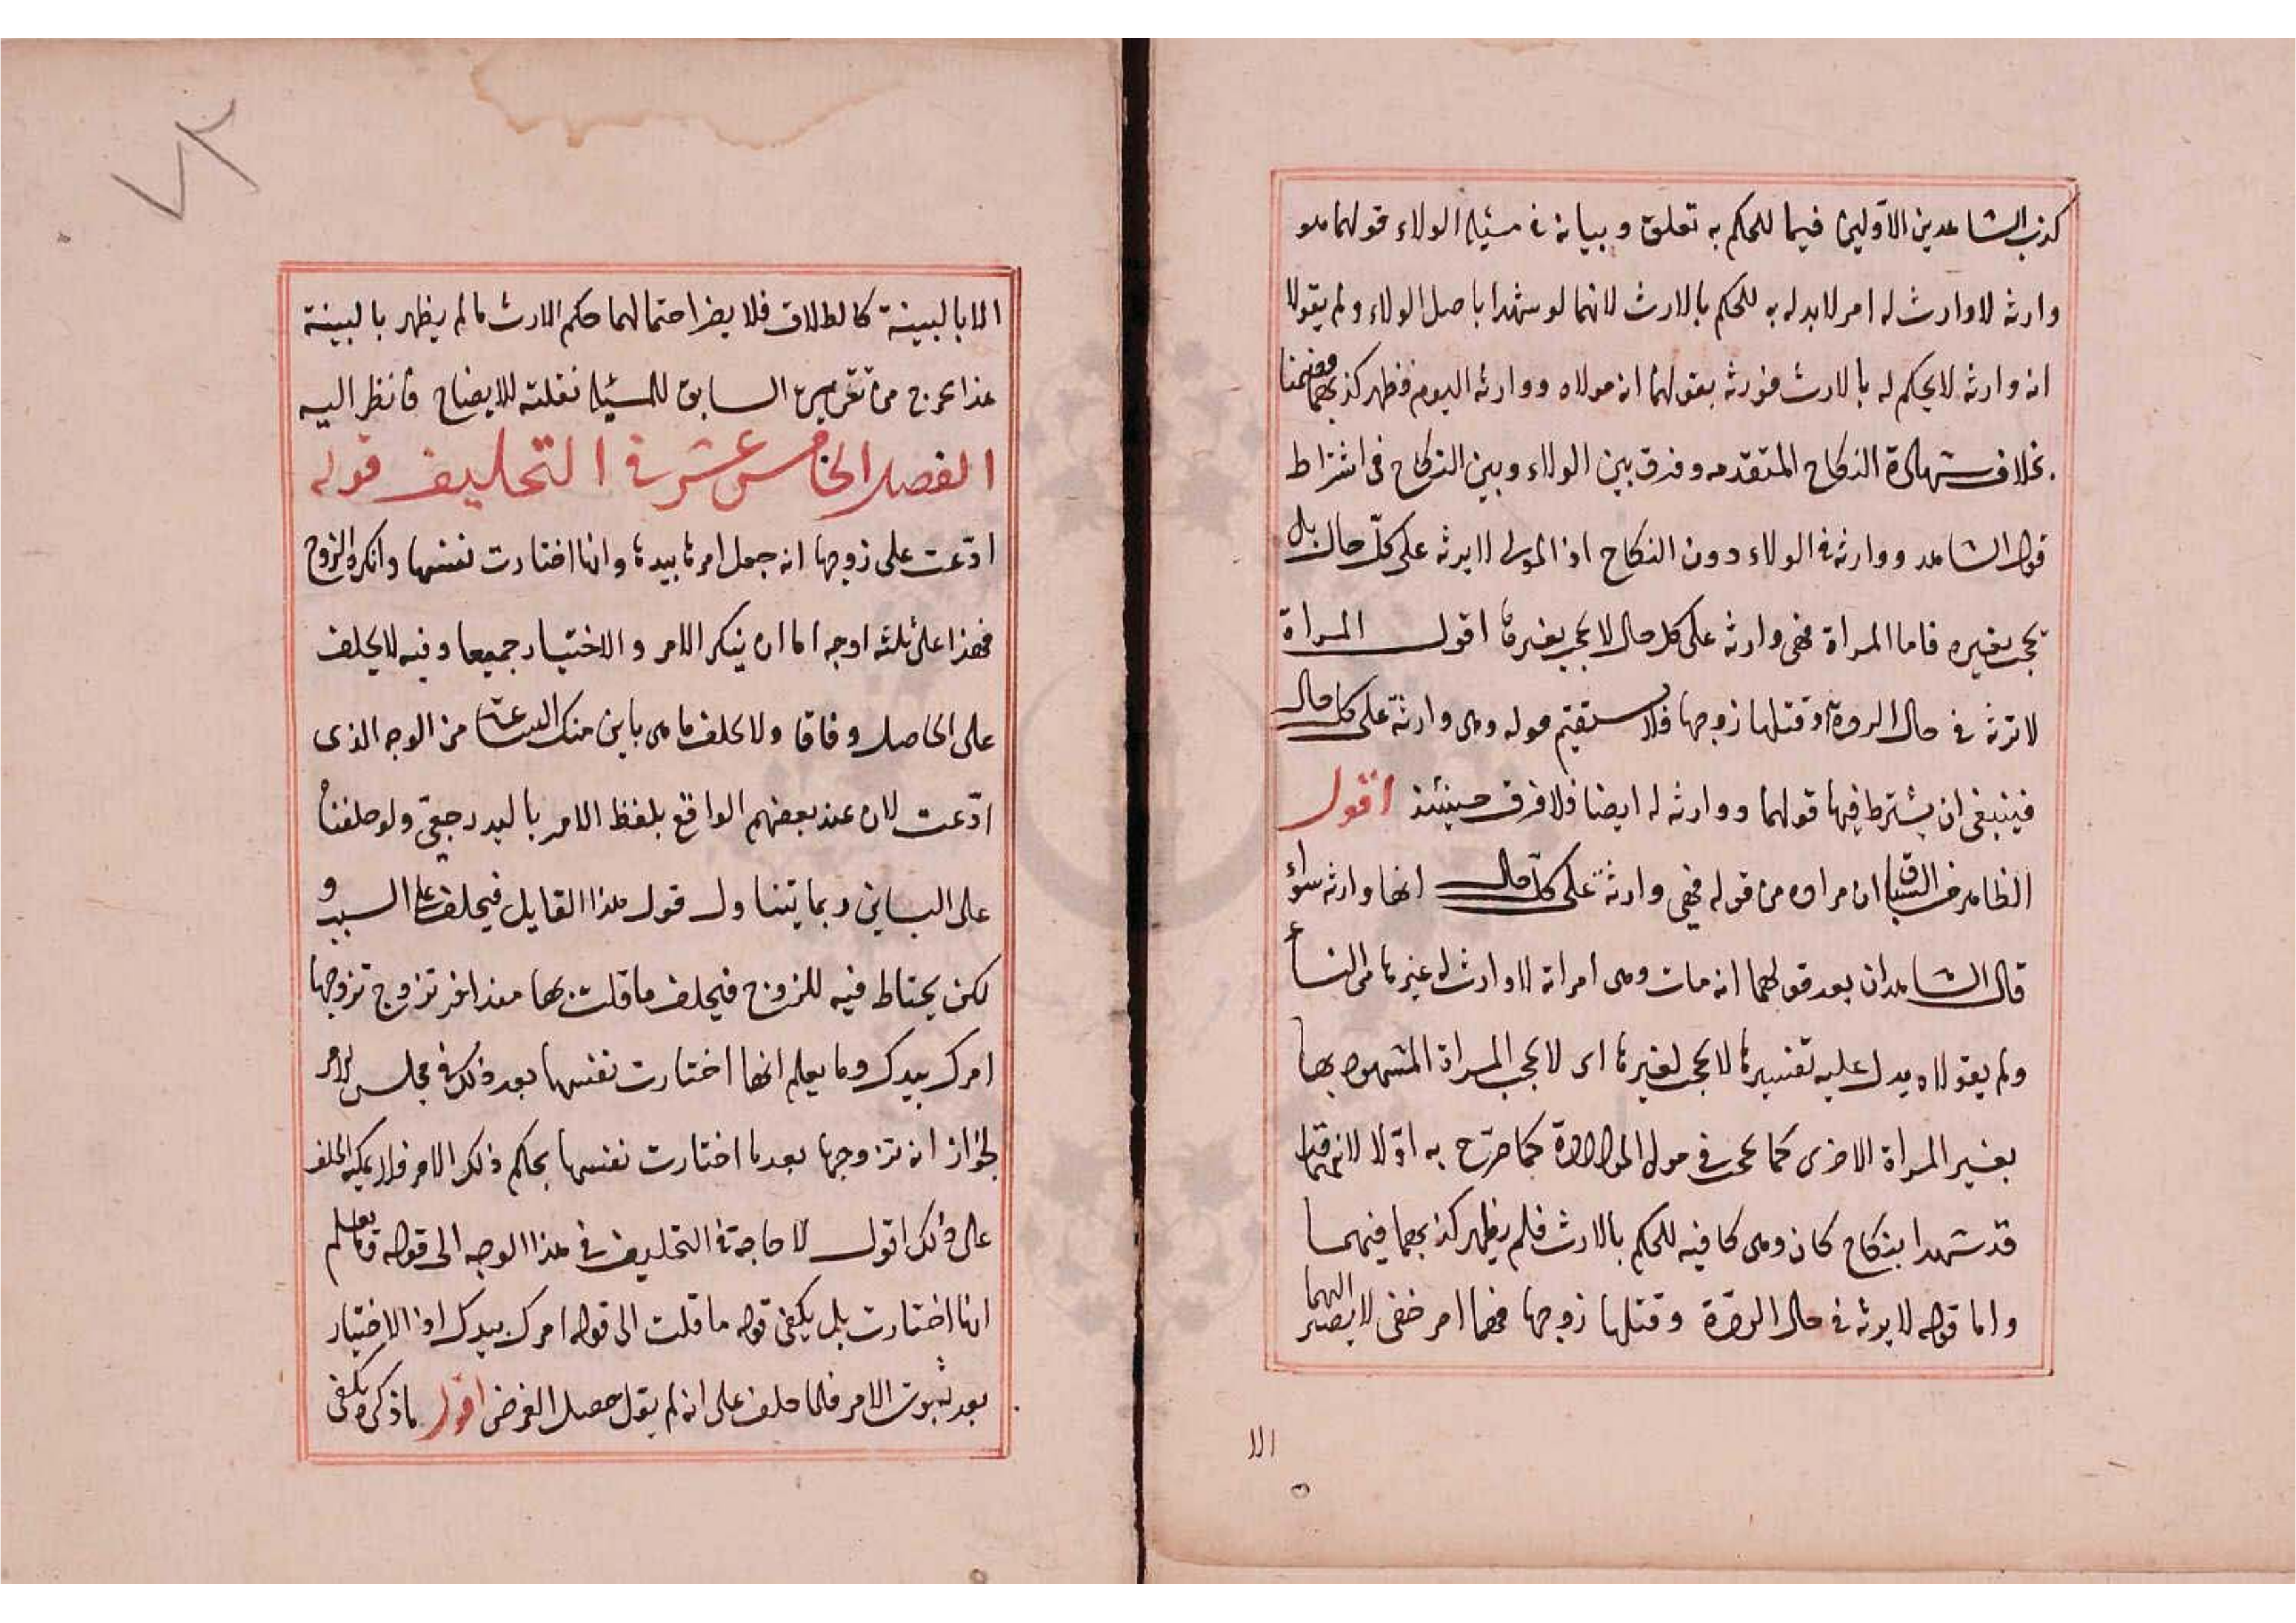 كذب الشاهدين الأولين فيما للحكم به تعلق وبيانه في مسئلة الولاء قولهما هو
وارثه لا وارث له امر لابد له به للحكم بالارث لانهما لو شهدا باصل الولاء ولم يقولا
انه وارثه لا يحكم له بالارث فورثه بقولهما انه مولاه ووارثه اليوم فظهر كذبهما فضمنا
بخلاف شهادة النكاح المتقدمه وفرق بين الولاء وبين النكاح في اشتراط
قول الشاهد ووارثه في الولاء دون النكاح اذ المولى لا يرثه على كلّ حال بل
يحجب بغيره فاما المراة فهى وارثه على كل حال لا تحجب بغيرها اقول المراة
لا ترثه في حال الردة وقتلها زوجها فلا يستقيم قوله وهى وارثة على كل حال
فينبغى ان يشترط فيها قولهما ووارثه له ايضا فلا فرق حينئذ اقول
الظاهر في السباق ان مراده من قوله فهى وارثة على كلّ حال انها وارثه سواء
قال الشاهدان بعد قولهما انه مات وهى امراته لا وارث له غيرها من النساء
ولم يقولاه يدل عليه تفسيره لا تحجب بغيرها اى لا تحجب المراة المشهود بها
بغير المراة الاخرى كما يحجب في مولى الموالاة كما صرّح به اوّلا لانهما
قد شهدا بنكاح كان وهى كافيه للحكم بالارث فلم يظهر كذبهما فيهما
واما قوله لا يرثه في حال الردّة وقتلها زوجها فهما امر خفى لا يصير اليهما
الا
٧٢
الا بالبينة كالطلاق فلا يضر احتمالهما حكم الارث مالم يظهر بالبينة
هذا يخرج من السابق للمسئلة نقلته للايضاح فانظر اليه
الفصل الخامس عشر في التحليف قوله
ادّعت على زوجها انه جعل امرها بيدها وانها اختارت نفسها وانكره الزوج
فهذا على ثلثه اوجه اما ان ينكر الامر والاختيار جميعا وفيه لا يحلف
على الحاصل وفاقا ولا يحلف ما هى باين منك الساعة من الوجه الذى
ادّعت لان عند بعضهم الواقع بلفظ الامر باليد رجعىّ ولو حلفناه
على الباين ربما يتناول قول هذا القايل فيحلف على السبب و
لكن يحتاط فيه للزوج فيحلف ما قلت بها منذ اخر تزوج تزوجها
امرك بيدك وما يعلم انها اختارت نفسها بعد ذلك في مجلس الامر
لجواز انه تزوجها بعدما اختارت نفسها بحكم ذلك الامر فلا يمكنه الحلف
على ذلك اقول لا حاجة في التحليف في هذا الوجه الى قوله وما يعلم
انها اختارت بل يكفى قوله ما قلت الى قوله امرك بيدك اذ الاختيار
بعد ثبوت الامر فلما حلف على انه لم يقل حصل الغرض اقول ما ذكره يكفى